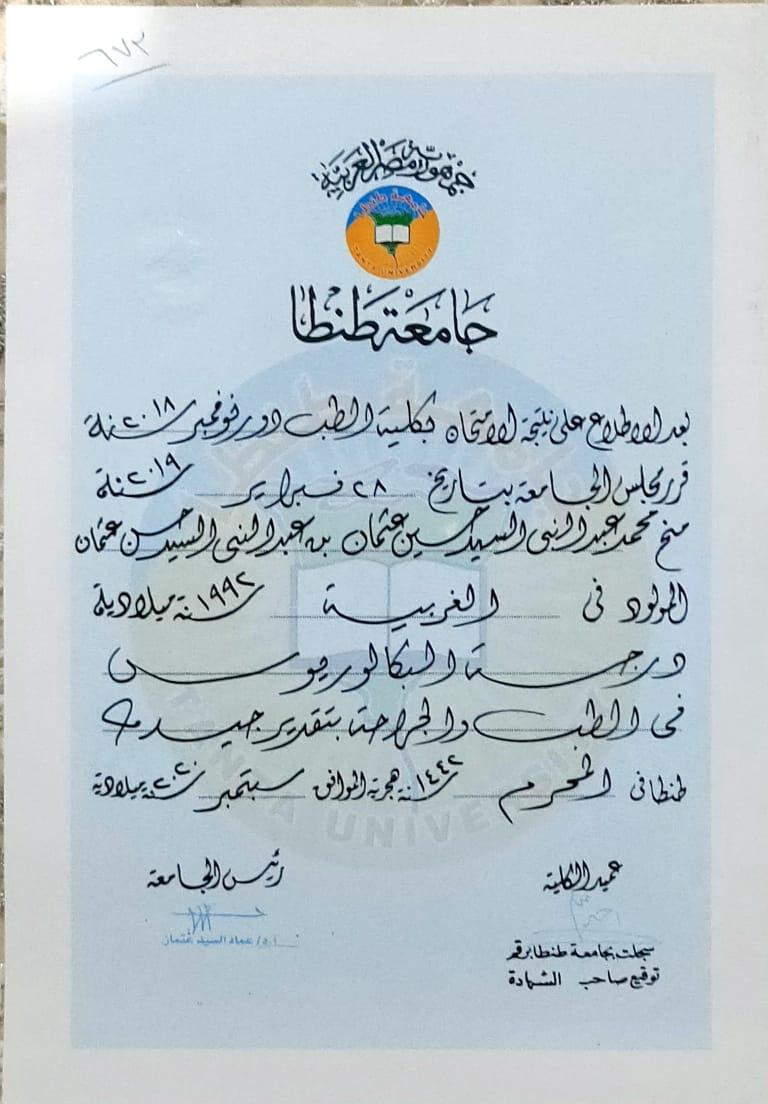 ٦٧٣
جمهورية مصر العربية
جامعة طنطا
TANTA UNIVERSITY
جامعة طنطا
بعد الاطلاع على نتيجة الامتحان بكلية الطب دور نوفمبر سنة ٢٠١٨
قرر مجلس الجامعة بتاريخ ٢٨ فبراير سنة ٢٠١٩
منح محمد عبدالنبى السيد حسين عثمان بن عبدالنبى السيد حسن عثمان
المولود فى الغربية سنة ١٩٩٢ ميلادية
درجة البكالوريوس
فى الطب والجراحة بتقدير جيد
طنطا فى المحرم سنة ١٤٤٢ هجرية الموافق سبتمبر سنة ٢٠٢٠ ميلادية
عميد الكلية
رئيس الجامعة
ا.د/ عماد السيد عتمان
سجلت بجامعة طنطا برقم
توقيع صاحب الشهادة
TANTA UNIVERSITY